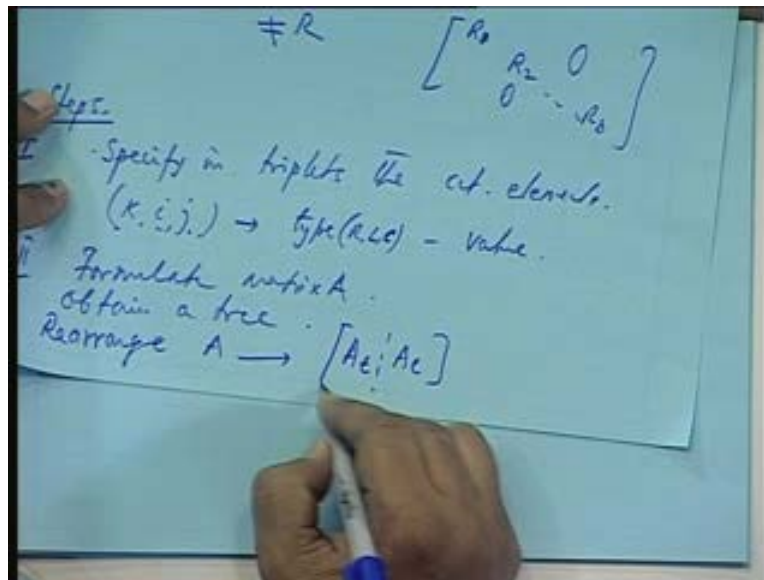 ≠ R
[R1 R2 0 0 ... Rb]
Steps.
I Specify in triplets the cct. elements.
(K, i, j,) → type (R,L,C) – value.
II Formulate matrix A.
Obtain a tree.
Rearrange A → [At ⋮ Ac]